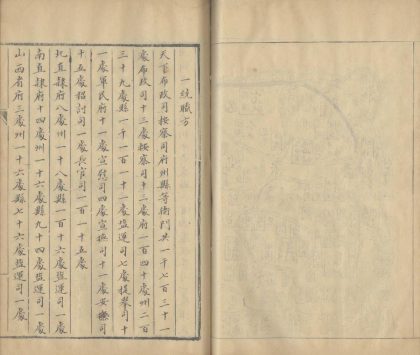 一統職方
天下布政司按察司府州縣等衙門共一千七百三十一
處布政司十三處按察司十三處府一百四十處州二百
三十九處縣一千一百一十一處盐運司七處提舉司十
一處軍民府十一處宣慰司四處宣撫司十一處安撫司
十五處招討司一處長官司一百一十五處
北直隸府八處州一十八處縣一百十六處盐運司一處
南直隸府十四處州一十六處縣九十四處盐運司一處
山西省府三處州一十六處縣七十六處盐運司一處